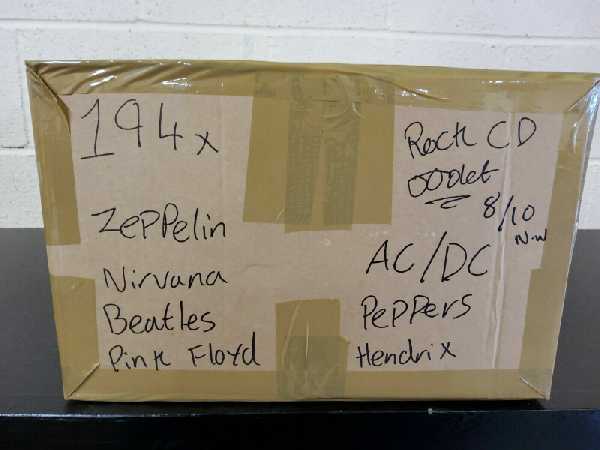 194x
Zeppelin
Nirvana
Beatles
Pink Floyd
Rock CD
8/10
AC/DC
Peppers
Hendrix